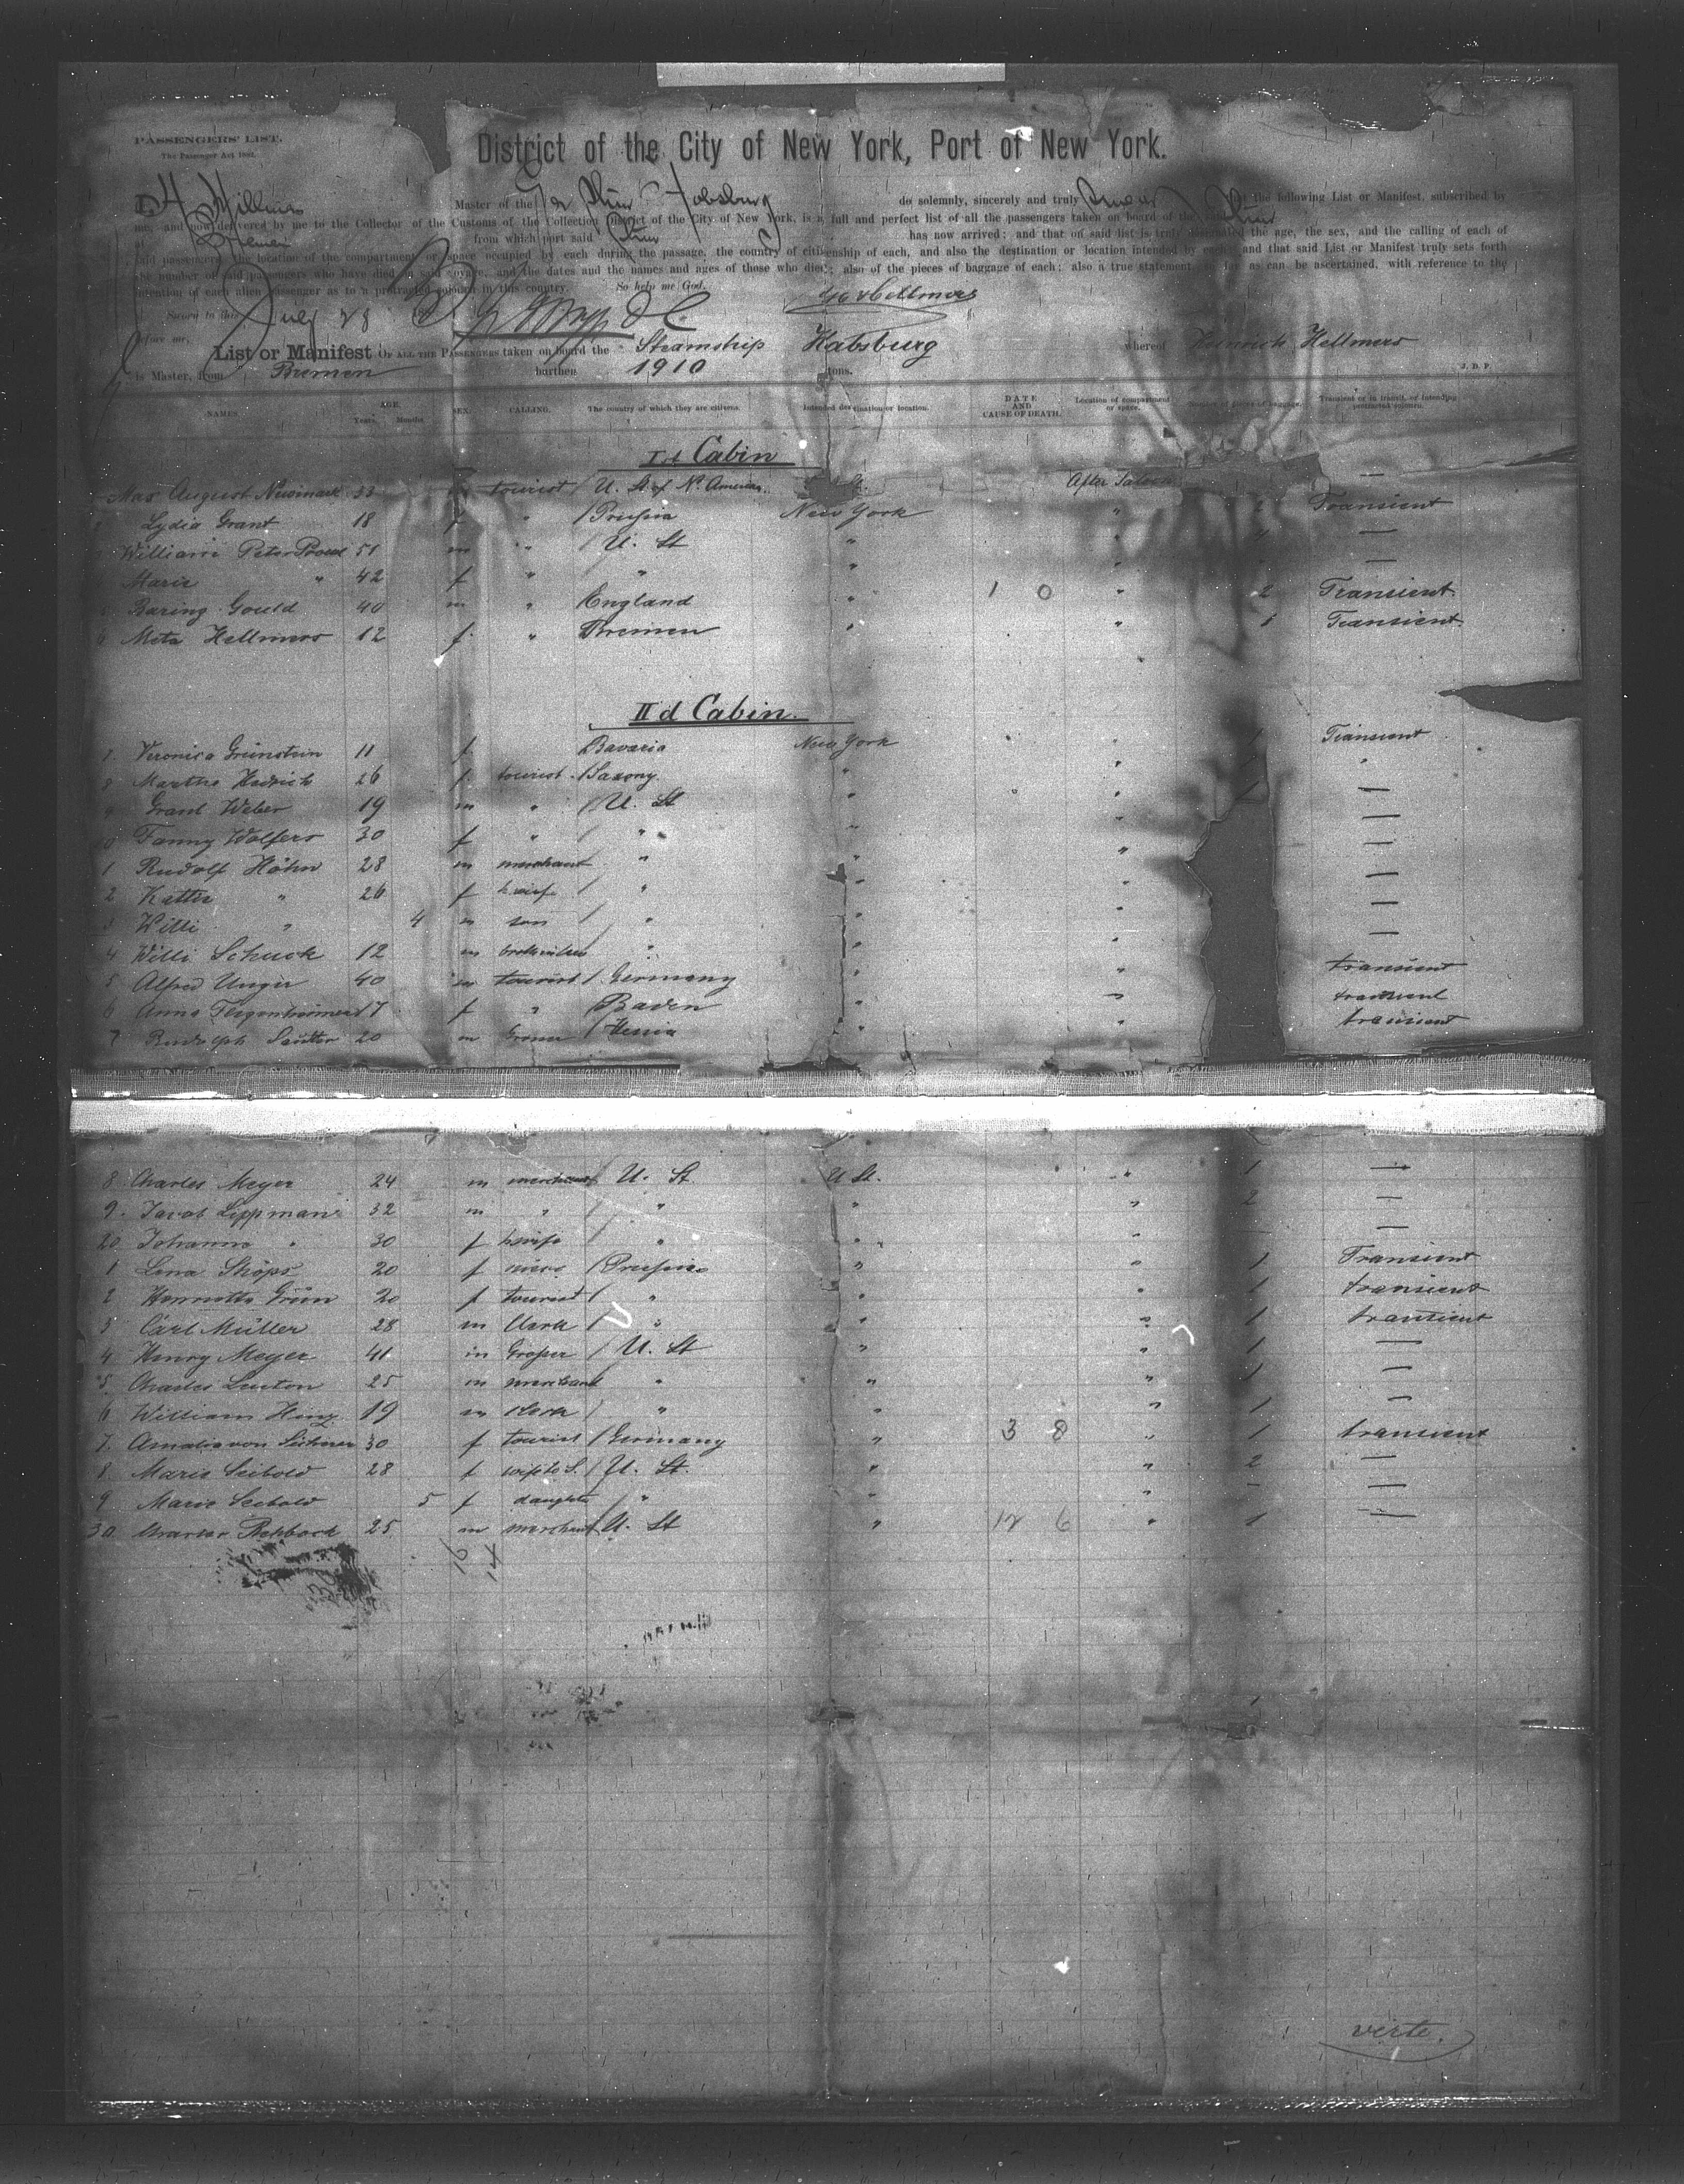 PASSENGERS' LIST.
The Passenger Act 1882.
District of the City of New York, Port of New York.
I, H Hellmers Master of the Str Habsburg do solemnly, sincerely and truly swear that the following List or Manifest, subscribed by
me, and now delivered by me to the Collector of the Customs of the Collection District of the City of New York, is a full and perfect list of all the passengers taken on board of the said
at Bremen from which port said has now arrived; and that on said list is truly designated the age, the sex, and the calling of each of
said passengers, the location of the compartment or space occupied by each during the passage, the country of citizenship of each, and also the destination or location intended by each; and that said List or Manifest truly sets forth
the number of said passengers who have died on said voyage, and the dates and the names and ages of those who died; also of the pieces of baggage of each; also a true statement, so far as can be ascertained, with reference to the
intention of each alien passenger as to a protracted sojourn in this country. So help me God.
Sworn to this July 28
before me,
List or Manifest OF ALL THE PASSENGERS taken on board the Steamship Habsburg whereof Heinrich Hellmers
is Master, from Bremen burthen 1910 tons. J. D. P.
NAMES. AGE. Years. Months. SEX. CALLING. The country of which they are citizens. Intended destination or location. DATE AND CAUSE OF DEATH. Location of compartment or space. Number of pieces of baggage. Transient or in transit, or intending protracted sojourn.
Id Cabin
August 33 tourist / U. St. of N. America After Saloon —
Lydia Grant 18 f " / Prussia New York " 2 Transient
William Peter 51 m " / U. St " " —
Marie " 42 f " " " —
Baring Gould 40 m " England " 1 0 " 2 Transient.
6 Meta Hellmers 12 f. " Bremen " " 1 Transient.
IId Cabin.
Veronica Grünstein 11 f Bavaria New York " 1 Transient
8 Martha 26 f. tourist / Saxony. " " "
9 Grant Weber 19 m " / U. St " 1 —
0 Fanny Wolfers 30 f " / " " —
1 Rudolf Höhn 28 m merchant " " " —
2 " 26 f h.wife / " " " —
3 Willi " 4 m son / " " " —
4 Willi Schuck 12 m " " " —
5 Alfred Unger 40 m tourist / Germany " " transient
6 Anna 17 f " / Baden " " transient
7 Rudolph 20 m / " " transient
8 Charles Meyer 24 m merchant / U. St U St. " 1 —
9. Jacob Lippmann 32 m " / " " " 2 —
20 Johanna " 30 f h.wife " " " —
1 Lina 20 f niece / Prussia " " 1 Transient
2 Henriette Grün 20 f tourist / " " " 1 transient
3 Carl Müller 28 m Clerk / " " " 1 transient
4 Henry Meyer 41 m / U. St " " 1 —
5 Charles 25 m merchant " " " 1 —
6 William Hinz 19 m clerk / " " " 1 —
7. Amalie von 30 f tourist / Germany " 3 8 " 1 transient
8 Marie Seebold 28 f wife to S. / U. St. " " 2 —
9 Marie Seebold 5 f daughter / " " " —
30 25 m merchant / U. St " 12 6 " 1 —
16
14
verte.